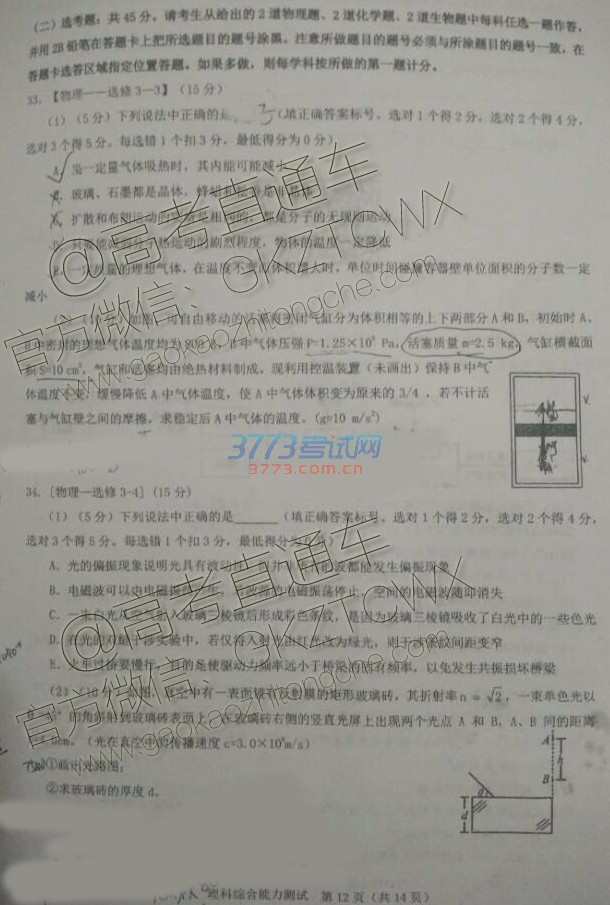 (二)选考题：共45分。请考生从给出的2道物理题、2道化学题、2道生物题中每科任选一题作答，
并用2B铅笔在答题卡上把所选题目的题号涂黑。注意所做题目的题号必须与所涂题目的题号一致，在
答题卡选答区域指定位置答题。如果多做，则每学科按所做的第一题计分。
33.【物理——选修3—3】(15分)
(1)(5分)下列说法中正确的是 (填正确答案标号。选对1个得2分，选对2个得4分，
选对3个得5分。每选错1个扣3分，最低得分为0分)
A. 当一定量气体吸热时，其内能可能减小
B. 玻璃、石墨都是晶体，
扩散和布朗运动的 是相同的，都是分子的无规则运动
分子热运动的剧烈程度，物体的温度一定降低
E. 一定质量的理想气体，在温度不变而体积增大时，单位时间碰撞容器壁单位面积的分子数一定
减小
(10分)如图，可自由移动的活塞将密闭气缸分为体积相等的上下两部分A和B，初始时A、
B中密封的理想气体温度均为 B中气体压强P=1.25×10⁵ Pa，活塞质量m=2.5 kg，气缸横截面
积S=10cm²，气缸和活塞均由绝热材料制成。现利用控温装置(未画出)保持B中气
体温度不变，缓慢降低A中气体温度，使A中气体体积变为原来的3/4，若不计活
塞与气缸壁之间的摩擦，求稳定后A中气体的温度。(g=10 m/s²)
3773考试网
3773.com.cn
34.[物理—选修3-4](15分)
(1)(5分)下列说法中正确的是______(填正确答案标号。选对1个得2分，选对2个得4分，
选对3个得5分。每选错1个扣3分，最低得分为0分)
A. 光的偏振现象说明光具有波动性，但并非所有的波都能发生偏振现象
B. 电磁波可以由电磁振荡产生，若波源的电磁振荡停止，空间的电磁波随即消失
C. 一束白光从空气射入玻璃三棱镜后形成彩色条纹，是因为玻璃三棱镜吸收了白光中的一些色光
D. 在光的双缝干涉实验中，若仅将入射光由红光改为绿光，则干涉条纹间距变窄
E. 火车过桥要慢行，目的是使驱动力频率远小于桥梁的固有频率，以免发生共振损坏桥梁
(2)(10分)如图，真空中有一表面镀有反射膜的矩形玻璃砖，其折射率n=√2，一束单色光以
的角射到玻璃砖表面上，在玻璃砖右侧的竖直光屏上出现两个光点A和B，A、B间的距离
cm。(光在真空中的传播速度c=3.0×10⁸m/s)
①画出光路图；
②求玻璃砖的厚度d。
A
h
B
θ
d
理科综合能力测试 第12页(共14页)
@高考直通车
官方微信：GKZTCWX
www.gaokaozhitongche.com
@高考直通车
官方微信：GKZTCWX
www.gaokaozhitongche.com